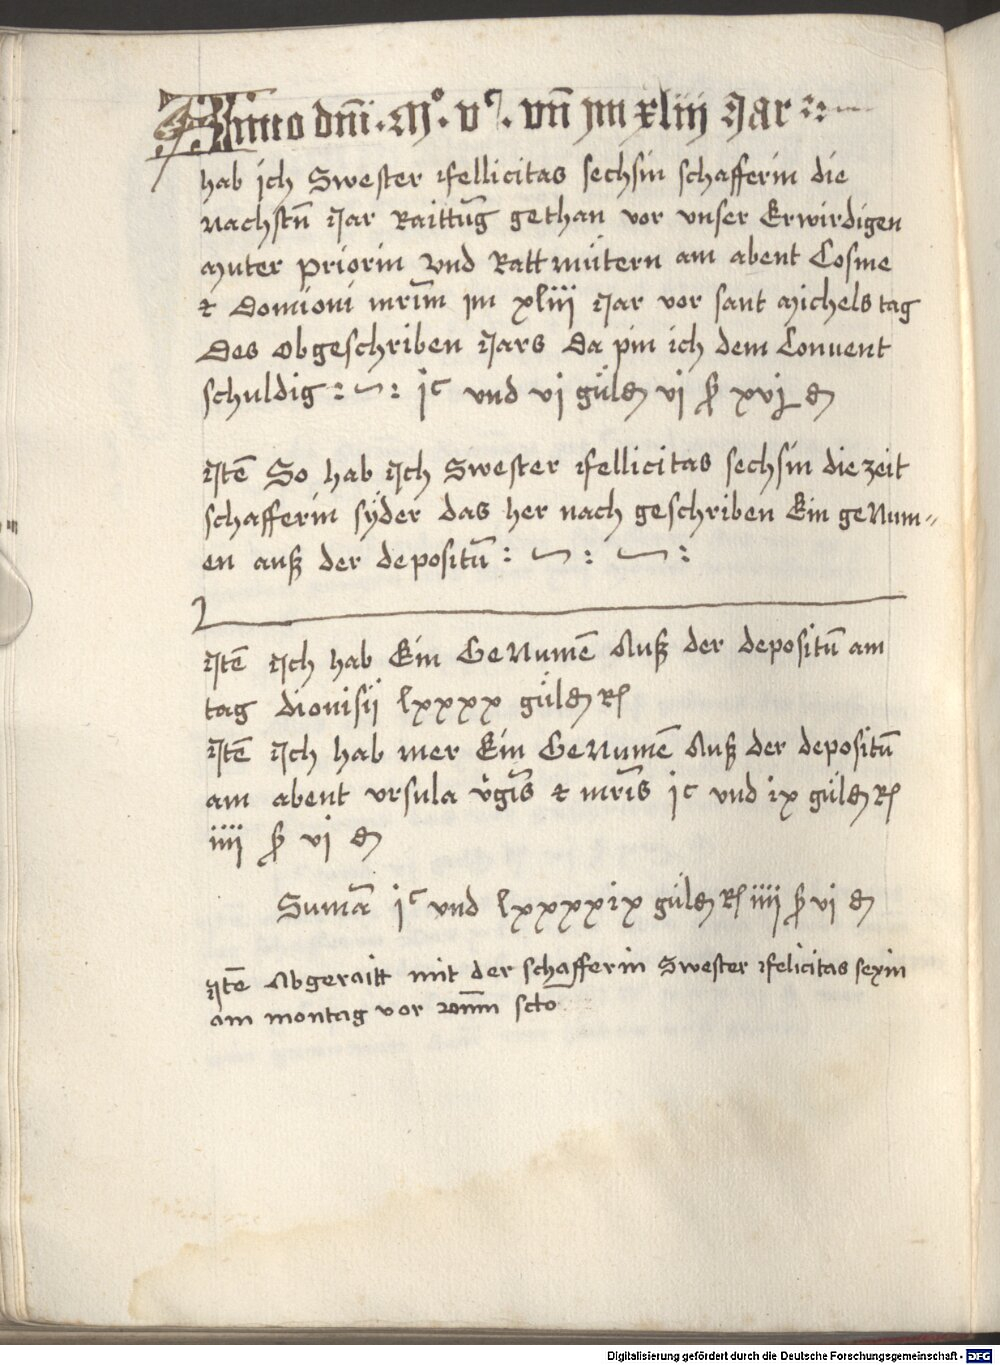 Anno dnı̄. M°. vᶜ. vn̄ im xliij Jar
hab ich Swester ffellicitas sechsin schafferin die
nachstn̄ Jar Raittūg gethan vor vnser Erwirdigen
Muter priorin vnd Ratt müttern am abent Cosme
et Domioni mrīm im xliii Jar vor sant Michels tag
Des obgeschriben Jars Da pin ich dem Conuent
schuldig : ~ : jᶜ vnd vj güldn vj ß xvj d
Itē So hab Ich Swester ffellicitas sechsin die zeit
schafferin sÿder das her nach geschriben Ein geNum=
en auß der depositū : ~ : ~ :
Itē Ich hab Ein GeNumē Auß der depositū am
tag dionisÿ lxxxx güldn Rɧ
Itē Ich hab mer Ein GeNumē Auß der depositū
am abent vrsula v̄gīs et mrīs jᶜ vnd ix güldn Rɧ
iiii ß vj d
Sumā jᶜ vnd lxxxxix güldn Rɧ iiii ß vj d
Itē Abgeraitt mit der schafferin Swester ffelicitas sexin
am montag vor omm̄ scto
Digitalisierung gefördert durch die Deutsche Forschungsgemeinschaft - DFG